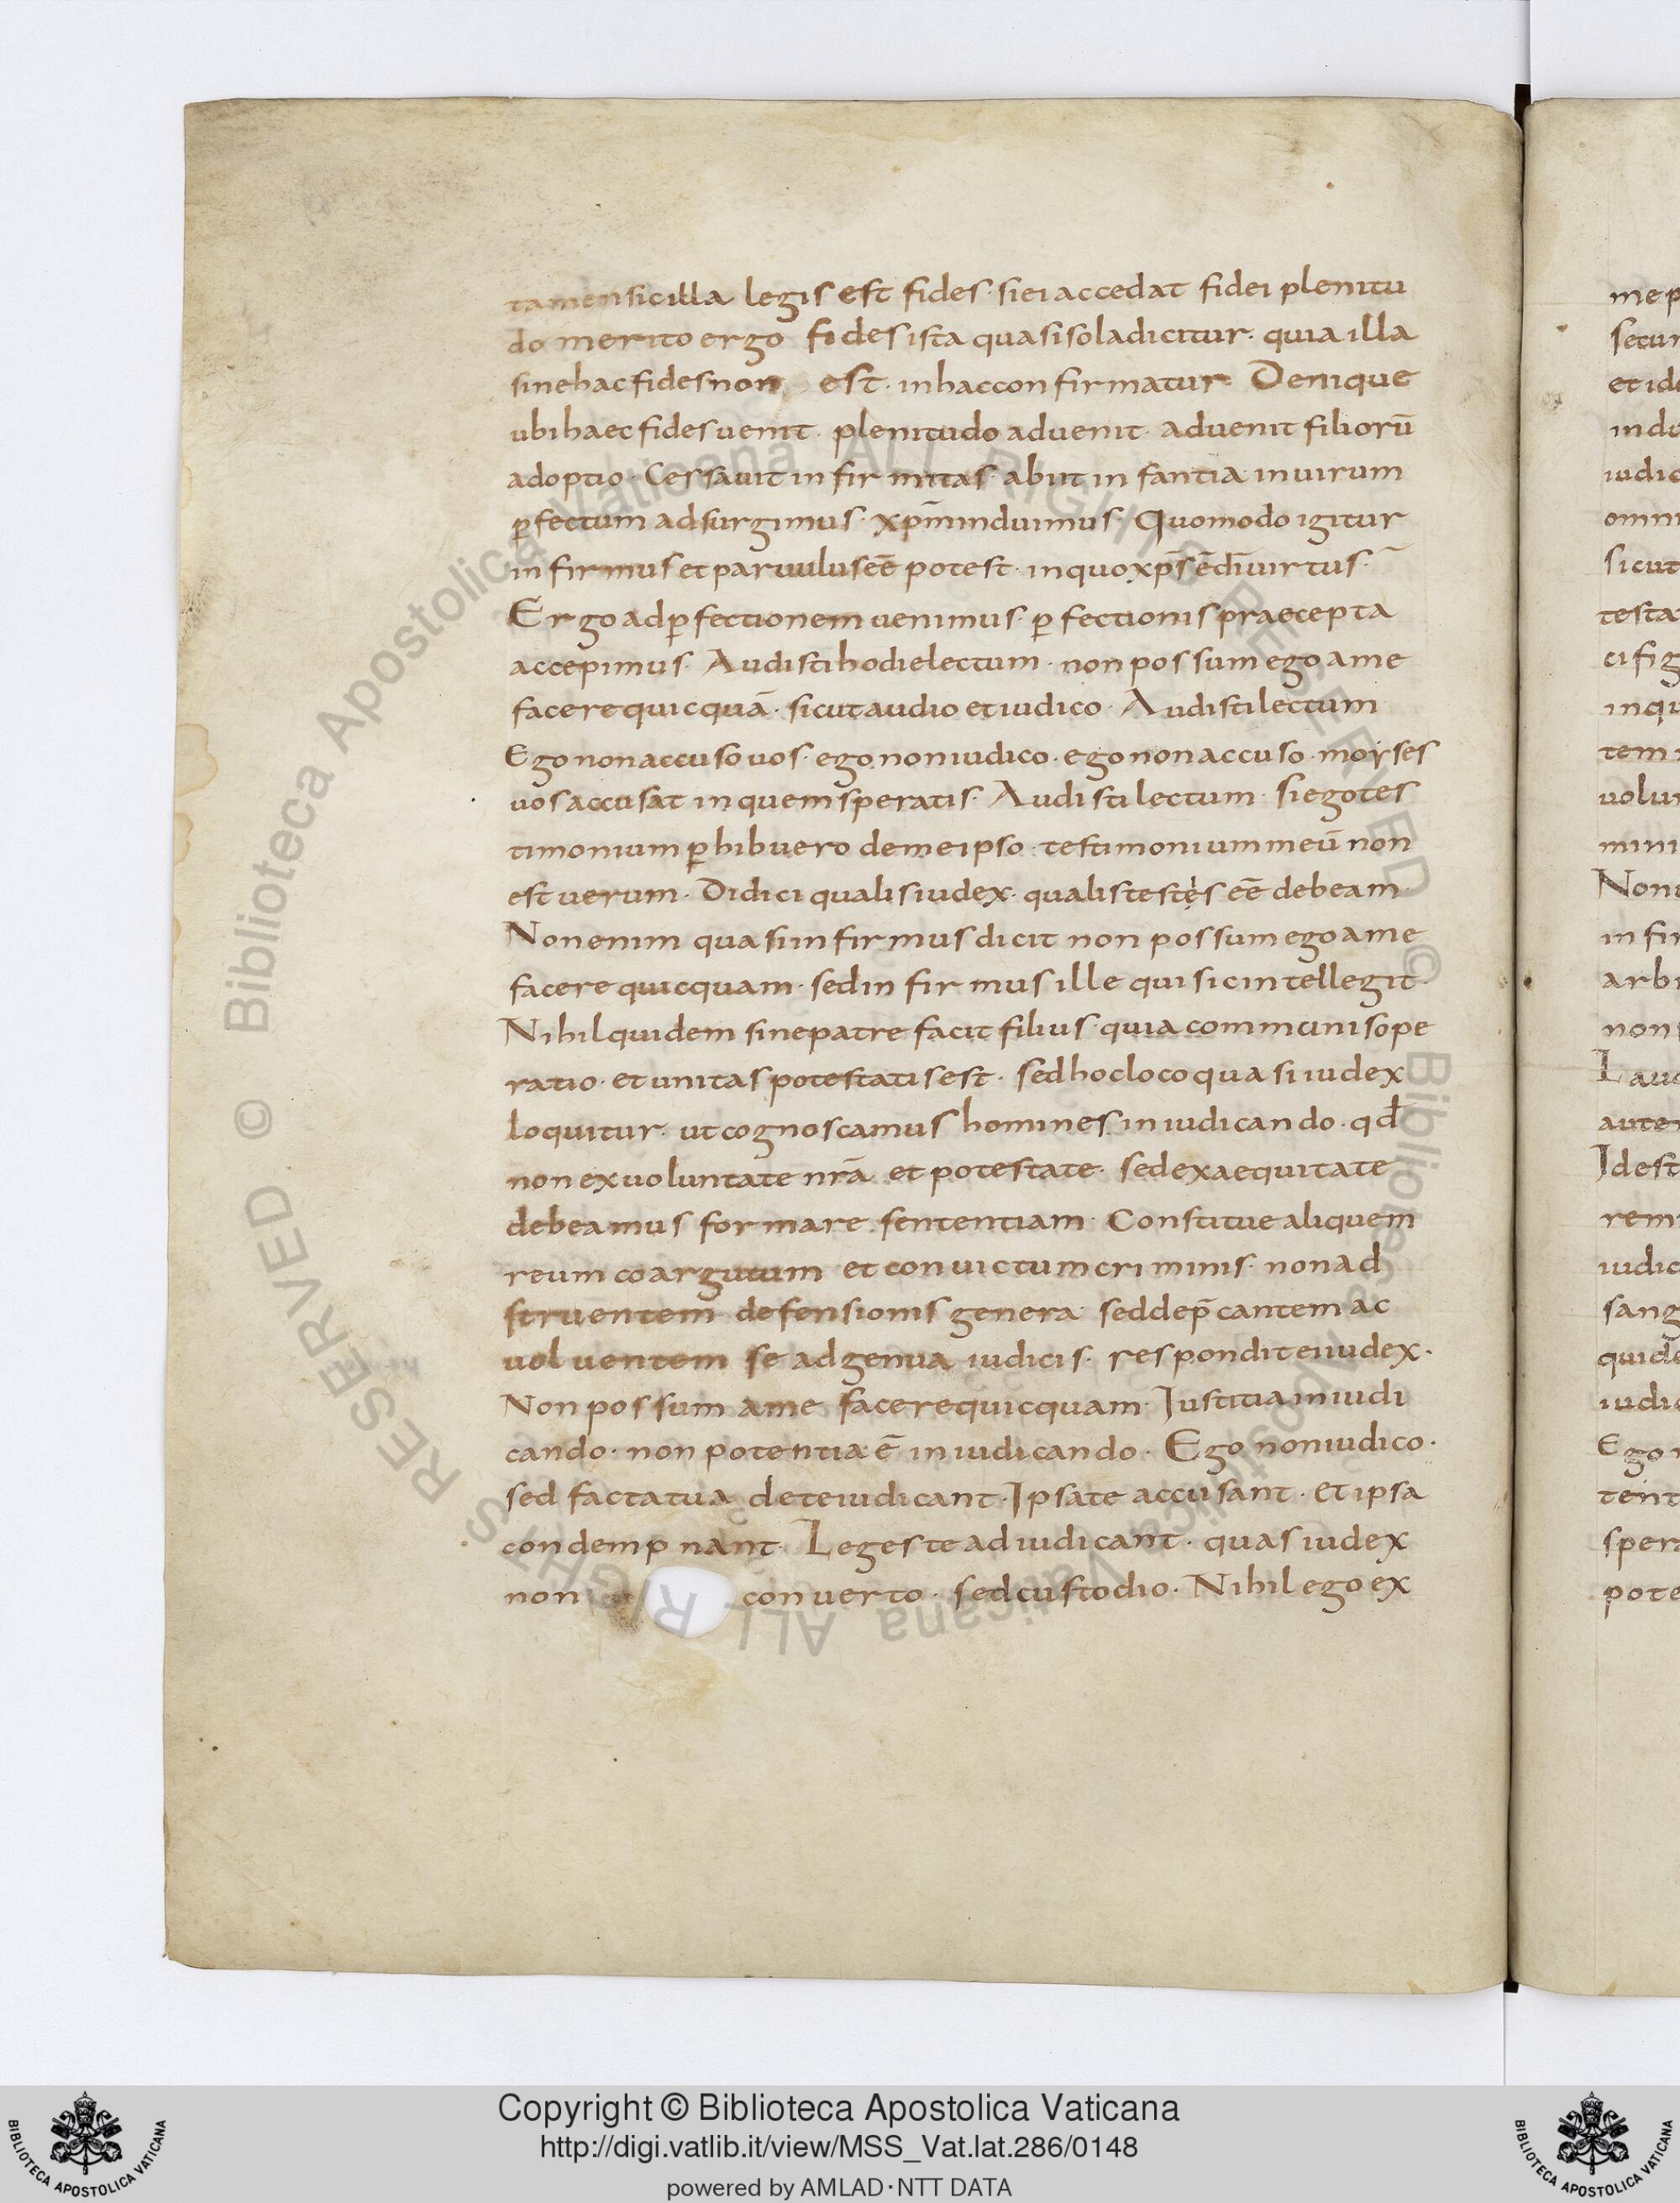 tamen sic illa legis est fides · si ei accedat fidei plenitu
do merito ergo fides ista quasi sola dicitur · quia illa
sine hac fides non est · in hac confirmatur · Denique
ubi haec fides uenit · plenitudo aduenit · aduenit filiorū
adoptio · Cessauit infirmitas · abiit infantia in uirum
ꝑfectum adsurgimus · xp̄m induimus · Quomodo igitur
infirmus et paruulus eē potest · in quo xp̄s ē dī uirtus ·
Ergo ad ꝑfectionem uenimus · ꝑfectionis praecepta
accepimus · Audisti hodie lectum · non possum ego a me
facere quicquā · sicut audio et iudico · Audisti lectum
Ego non accuso uos · ego non iudico · ego non accuso · moyses
uos accusat in quem speratis · Audisti lectum · si ego tes
timonium ꝑhibuero de me ipso · testimonium meū non
est uerum · Didici qualis iudex · qualis testes eē debeam ·
Non enim quasi infirmus dicit non possum ego a me
facere quicquam · sed infirmus ille qui sic intellegit ·
Nihil quidem sine patre facit filius · quia communis ope
ratio · et unitas potestatis est · sed hoc loco quasi iudex
loquitur · ut cognoscamus homines in iudicando · qđ
non ex uoluntate nr̄a et potestate · sed ex aequitate
debeamus formare sententiam · Constitue aliquem
reum coargutum et conuictum criminis · non ad
struentem defensionis genera · sed dep̄cantem ac
uoluentem se ad genua iudicis · respondit ei iudex ·
Non possum a me facere quicquam · Iustitia in iudi
cando · non potentia ē in iudicando · Ego non iudico ·
sed facta tua de te iudicant · Ipsa te accusant · et ipsa
condempnant · Leges te adiudicant · quas iudex
non conuerto · sed custodio · Nihil ego ex
mep
setur
et ide
indu
iudic
omni
sicut
testa
ci fig
inqu
tem
uolun
mini
Non
infir
arbi
non
Lauo
aute
Idest
rem
iudic
sang
quide
iudi
Ego
tent
sper
pote
© Biblioteca Apostolica Vaticana ALL RIGHTS RESERVED © Biblioteca Apostolica Vaticana ALL RIGHTS RESERVED
Copyright © Biblioteca Apostolica Vaticana
http://digi.vatlib.it/view/MSS_Vat.lat.286/0148
powered by AMLAD·NTT DATA
BIBLIOTECA APOSTOLICA VATICANA
BIBLIOTECA APOSTOLICA VATICANA